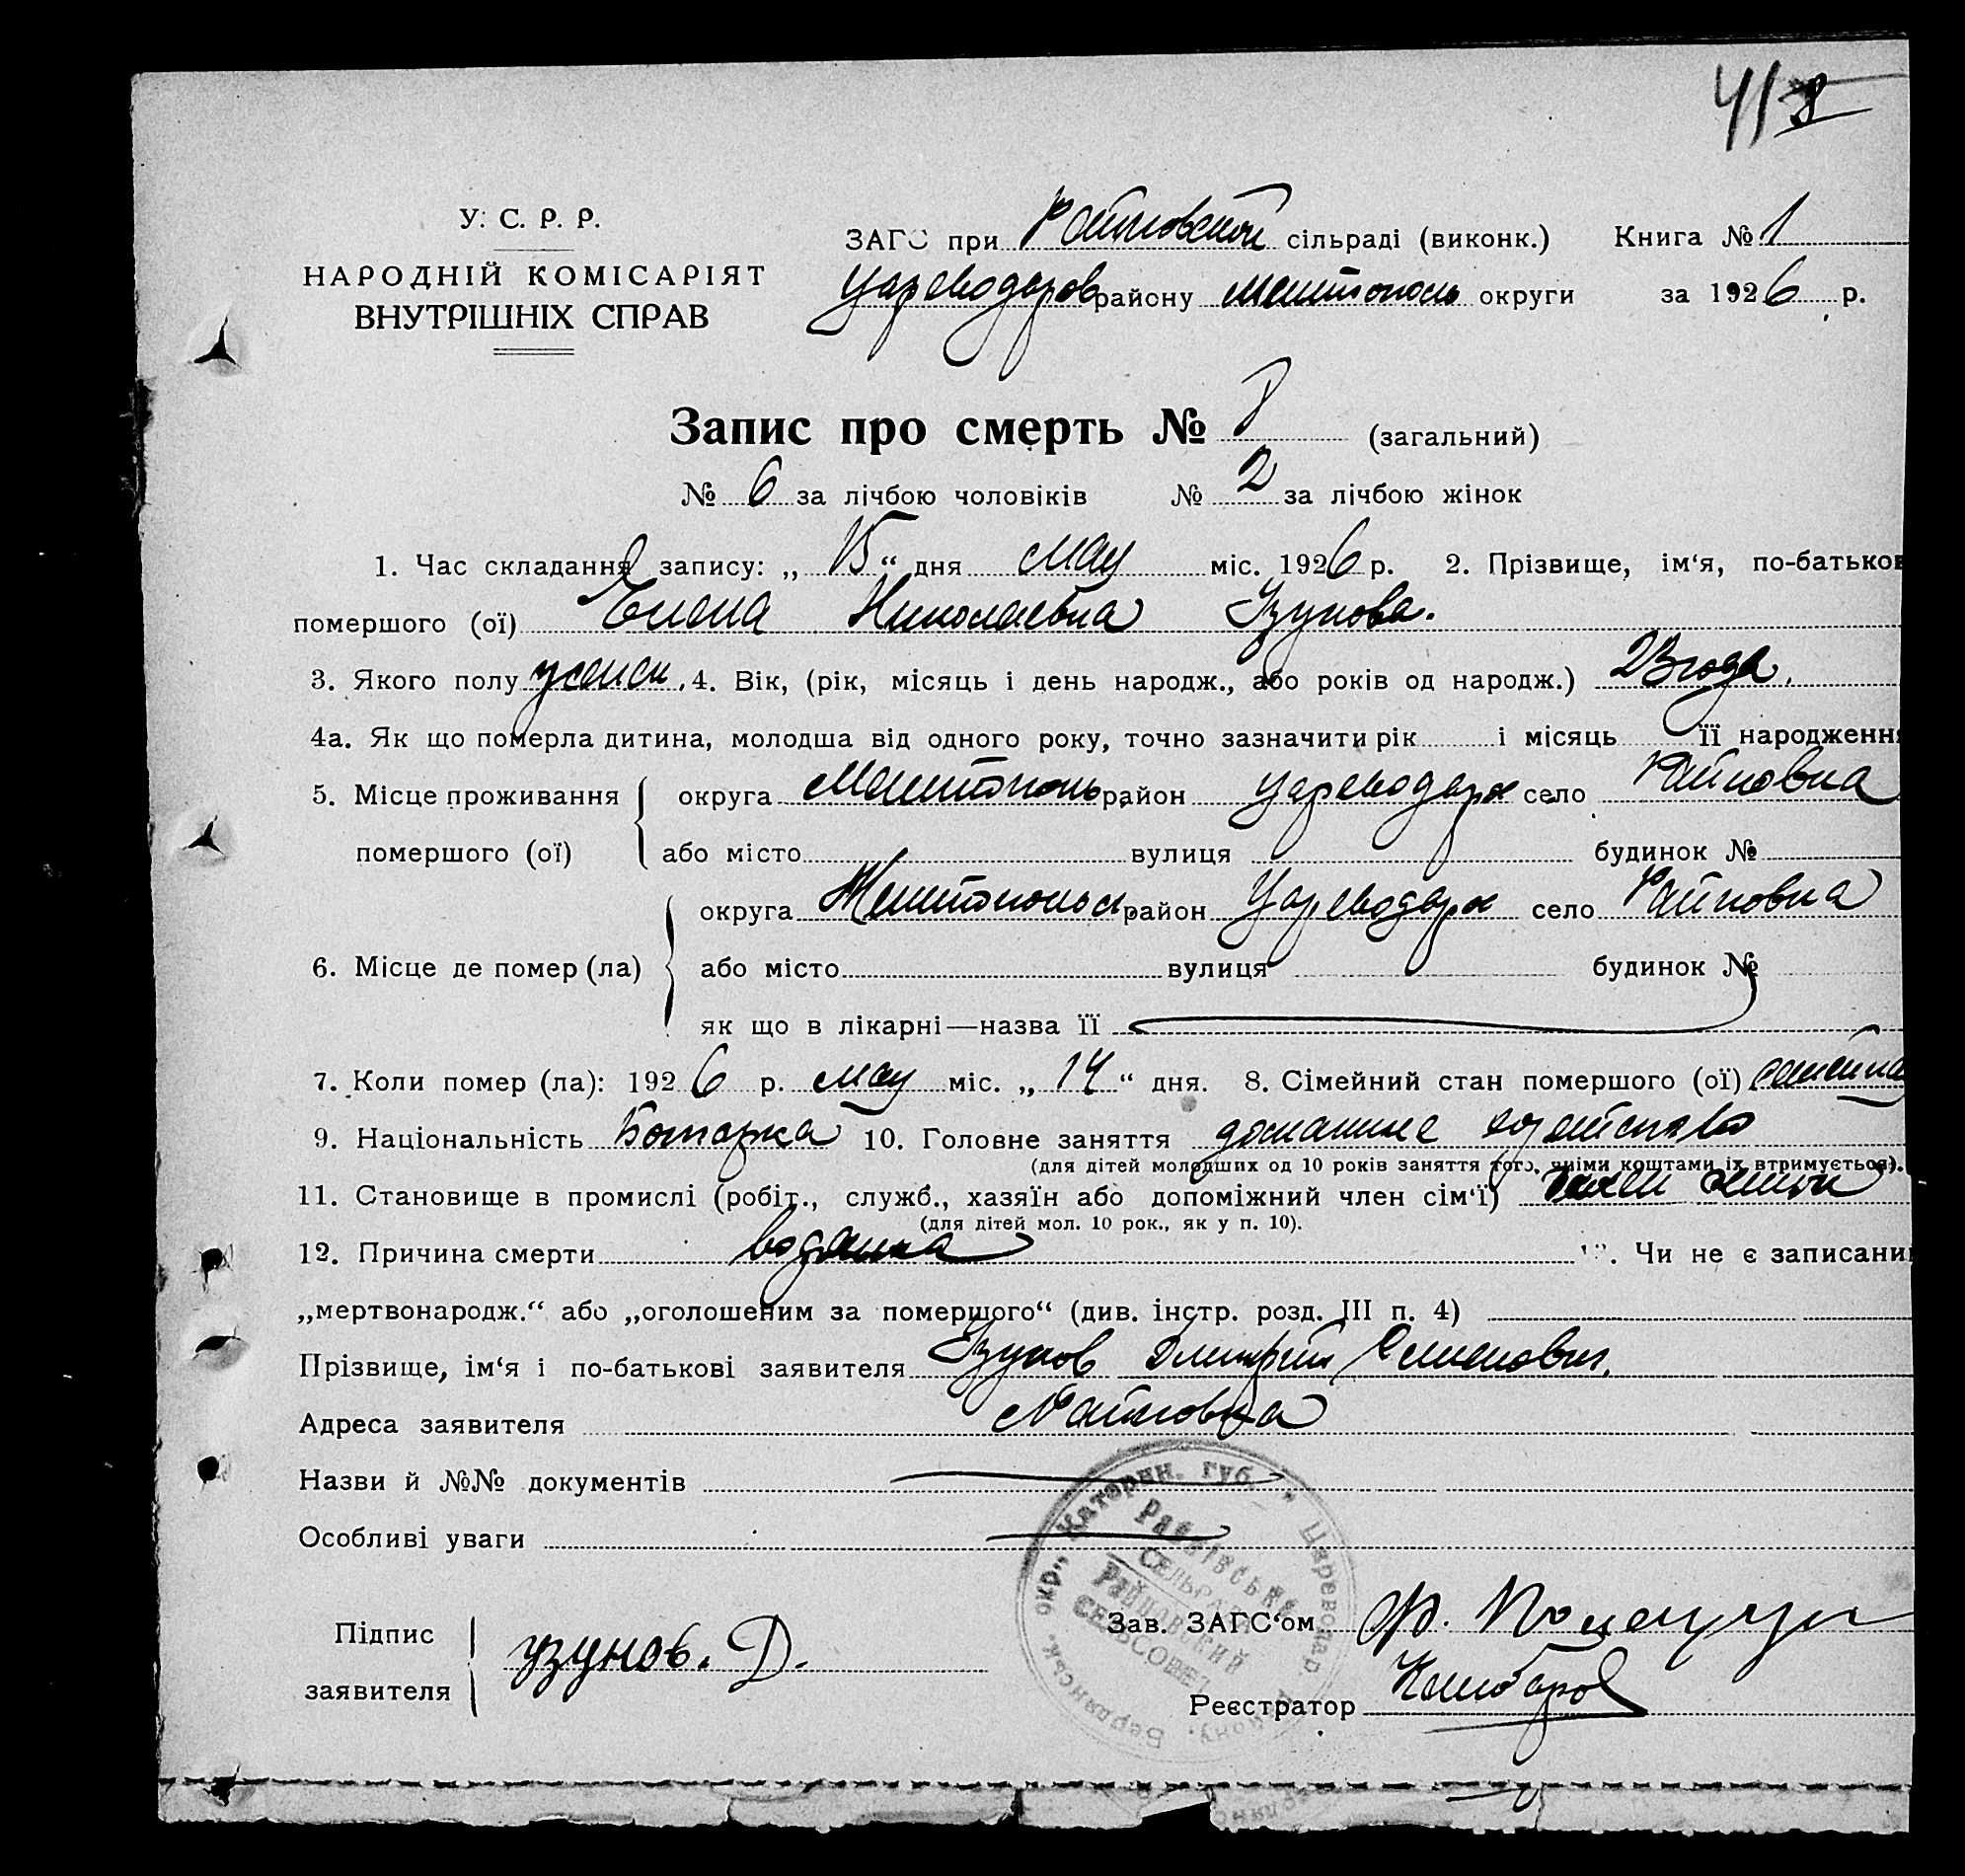 41 8
У. С. Р. Р.
НАРОДНІЙ КОМІСАРІЯТ
ВНУТРІШНІХ СПРАВ
ЗАГС при Райновской сільраді (виконк.) Книга № 1
Цареводаров району Мелитополь округи за 1926 р.
Запис про смерть № 8 (загальний)
№ 6 за лічбою чоловіків № 2 за лічбою жінок
1. Час складання запису: „ 15 “ дня Мау міс. 1926 р. 2. Прізвище, ім‘я, по-батькові
помершого (ої) Елена Николаевна Узунова.
3. Якого полу женск. 4. Вік, (рік, місяць і день народж., або років од народж.) 23 года.
4а. Як що померла дитина, молодша від одного року, точно зазначити рік і місяць її народження
5. Місце проживання округа Мелитополь район Цареводар село Райновка
помершого (ої) або місто вулиця будинок №
округа Мелитопольск район Цареводар село Райновка
6. Місце де помер (ла) або місто вулиця будинок №
як що в лікарні—назва її
7. Коли помер (ла): 1926 р. мау міс. „ 14 “ дня. 8. Сімейний стан помершого (ої) семейна
9. Національність Болгарка 10. Головне заняття домашнее хозяйство
(для дітей молодших од 10 років заняття того, чиїми коштами їх втримується).
11. Становище в промислі (робіт., служб., хазяїн або допоміжний член сім‘ї) член семьи
(для дітей мол. 10 рок., як у п. 10).
12. Причина смерти водянка Чи не є записаний
„мертвонародж.“ або „оголошеним за померщого“ (див. інстр. розд. III п. 4)
Прізвище, ім‘я і по-батькові заявителя Узунов Дмитрий Семенович.
Адреса заявителя Райновка
Назви й №№ документів
Особливі уваги
Бердянськ. окр., Катерин. губ. Цареводар району.
Райнівська
СЕЛЬРАДА
Райновский
СЕЛЬСОВЕТ
Підпис заявителя узунов. Д.
Зав. ЗАГС‘ом Ф.
Реєстратор